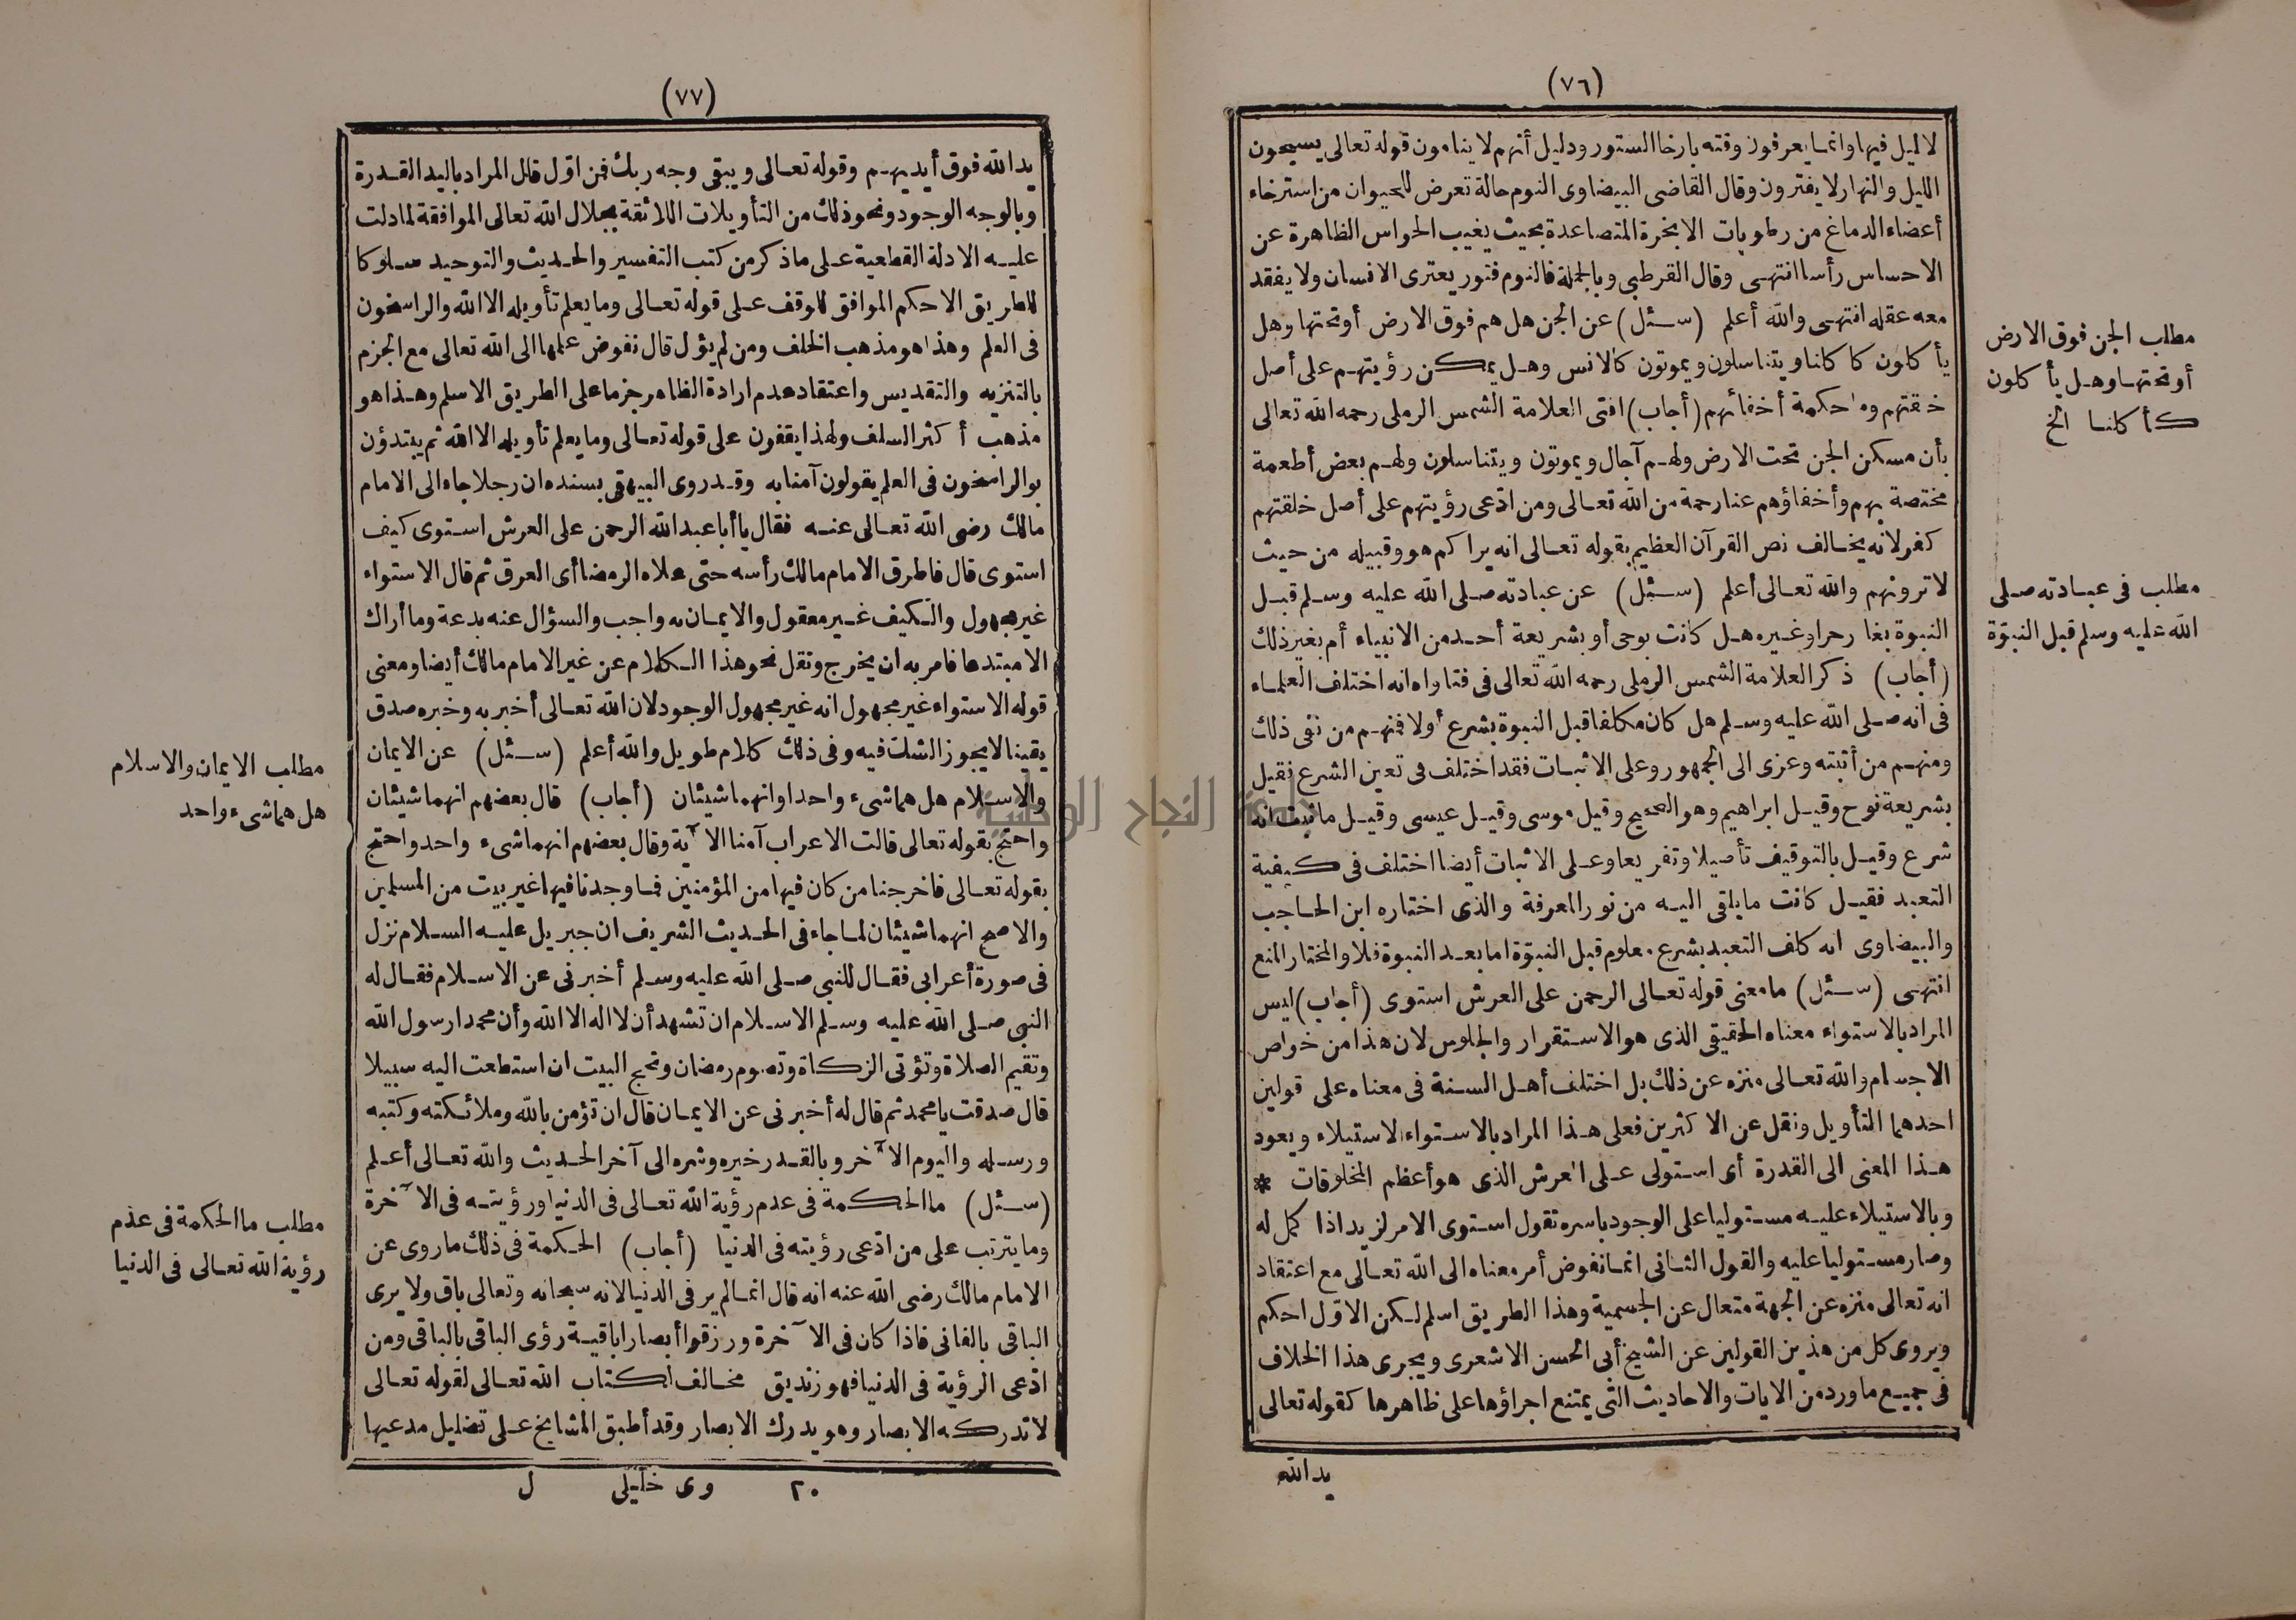 (٧٦)
لا ليل فيها وانما يعرفون وقته بارخا الستور ودليل أنهم لا ينامون قوله تعالى يسبحون
الليل والنهار لا يفترون وقال القاضى البيضاوى النوم حالة تعرض للحيوان من استرخاء
أعضاء الدماغ من رطوبات الابخرة المتصاعدة بحيث يغيب الحواس الظاهرة عن
الاحساس رأسا انتهى وقال القرطبى وبالجملة فالنوم فتور يعترى الانسان ولا يفقد
معه عقله انتهى والله أعلم (سئل) عن الجن هل هم فوق الارض أو تحتها وهل
يأكلون كاكلنا ويتناسلون ويموتون كالانس وهل يمكن رؤيتهم على أصل
خلقتهم وما حكمة أخفائهم (أجاب) افتى العلامة الشمس الرملى رحمه الله تعالى
بأن مسكن الجن تحت الارض ولهم آجال ويموتون ويتناسلون ولهم بعض أطعمة
مختصة بهم وأخفاؤهم عنا رحمة من الله تعالى ومن ادّعى رؤيتهم على أصل خلقتهم
كفر لانه يخالف نص القرآن العظيم بقوله تعالى انه يراكم هو وقبيله من حيث
لا ترونهم والله تعالى أعلم (سئل) عن عبادته صلى الله عليه وسلم قبل
النبوة بغار حرا وغيره هل كانت بوحى أو بشريعة أحد من الانبياء أم بغير ذلك
(أجاب) ذكر العلامة الشمس الرملى رحمه الله تعالى فى فتاواه انه اختلف العلماء
فى انه صلى الله عليه وسلم هل كان مكلفا قبل النبوة بشرع أولا فمنهم من نفى ذلك
ومنهم من أثبته وعزى الى الجمهور وعلى الاثبات فقد اختلف فى تعين الشرع فقيل
بشريعة نوح وقيل ابراهيم وهو الصحيح وقيل موسى وقيل عيسى وقيل ما ثبت انه
شرع وقيل بالتوقيف تأصيلا وتفريعا وعلى الاثبات أيضا اختلف فى كيفية
التعبد فقيل كانت ما يلقى اليه من نور المعرفة والذى اختاره ابن الحاجب
والبيضاوى انه كلف التعبد بشرع معلوم قبل النبوّة اما بعد النبوة فلا والمختار المنع
انتهى (سئل) ما معنى قوله تعالى الرحمن على العرش استوى (أجاب) ليس
المراد بالاستواء معناه الحقيقى الذى هو الاستقرار والجلوس لان هذا من خواص
الاجسام والله تعالى منزه عن ذلك بل اختلف أهل السنة فى معناه على قولين
احدهما التأويل ونقل عن الاكثرين فعلى هذا المراد بالاستواء الاستيلاء ويعود
هذا المعنى الى القدرة أى استولى على العرش الذى هو أعظم المخلوقات *
وبالاستيلاء عليه مستوليا على الوجود باسره تقول استوى الامر لزيد اذا كمل له
وصار مستوليا عليه والقول الثانى انما نفوض أمر معناه الى الله تعالى مع اعتقاد
انه تعالى منزه عن الجهة متعال عن الجسمية وهذا الطريق اسلم لكن الاوّل احكم
ويروى كل من هذين القولين عن الشيخ أبى الحسن الاشعرى ويجرى هذا الخلاف
فى جميع ما ورد من الايات والاحاديث التى يمتنع اجراؤها على ظاهرها كقوله تعالى
يد الله
مطلب الجن فوق الارض
أو تحتها وهل يأكلون
كأكلنا الخ
مطلب فى عبادته صلى
الله عليه وسلم قبل النبوّة
(٧٧)
يد الله فوق أيديهم وقوله تعالى ويبقى وجه ربك فمن اوّل قال المراد باليد القدرة
وبالوجه الوجود ونحو ذلك من التأويلات اللائقة بجلال الله تعالى الموافقة لما دلت
عليه الادلة القطعية على ما ذكر من كتب التفسير والحديث والتوحيد سلوكا
للطريق الاحكم الموافق للوقف على قوله تعالى وما يعلم تأويله الا الله والراسخون
فى العلم وهذا هو مذهب الخلف ومن لم يؤل قال نفوض علمها الى الله تعالى مع الجزم
بالتنزيه والتقديس واعتقاد عدم ارادة الظاهر جزما على الطريق الاسلم وهذا هو
مذهب أكثر السلف ولهذا يقفون على قوله تعالى وما يعلم تأويله الا الله ثم يبتدؤن
بوالراسخون فى العلم يقولون آمنا به وقد روى البيهقى بسنده ان رجلا جاء الى الامام
مالك رضى الله تعالى عنه فقال يا أبا عبد الله الرحمن على العرش استوى كيف
استوى قال فاطرق الامام مالك رأسه حتى علاه الرمضا أى العرق ثم قال الاستواء
غير مجهول والكيف غير معقول والايمان به واجب والسؤال عنه بدعة وما أراك
الا مبتدعا فامر به ان يخرج ونقل نحو هذا الكلام عن غير الامام مالك أيضا ومعنى
قوله الاستواء غير مجهول انه غير مجهول الوجود لان الله تعالى أخبر به وخبره صدق
يقينا لا يجوز الشك فيه وفى ذلك كلام طويل والله أعلم (سئل) عن الايمان
والاسلام هل هما شىء واحد او انهما شيئان (أجاب) قال بعضهم انهما شيئان
واحتج بقوله تعالى قالت الاعراب آمنا الآية وقال بعضهم انهما شىء واحد واحتج
بقوله تعالى فاخرجنا من كان فيها من المؤمنين فما وجدنا فيها غير بيت من المسلمين
والاصح انهما شيئان لما جاء فى الحديث الشريف ان جبريل عليه السلام نزل
فى صورة أعرابى فقال للنبى صلى الله عليه وسلم أخبرنى عن الاسلام فقال له
النبى صلى الله عليه وسلم الاسلام ان تشهد أن لا اله الا الله وأن محمدا رسول الله
وتقيم الصلاة وتؤتى الزكاة وتصوم رمضان وتحج البيت ان استطعت اليه سبيلا
قال صدقت يا محمد ثم قال له أخبرنى عن الايمان قال ان تؤمن بالله وملائكته وكتبه
ورسله واليوم الآخر وبالقدر خيره وشره الى آخر الحديث والله تعالى أعلم
(سئل) ما الحكمة فى عدم رؤية الله تعالى فى الدنيا ورؤيته فى الآخرة
وما يترتب على من ادّعى رؤيته فى الدنيا (أجاب) الحكمة فى ذلك ما روى عن
الامام مالك رضى الله عنه انه قال انما لم ير فى الدنيا لانه سبحانه وتعالى باق ولا يرى
الباقى بالفانى فاذا كان فى الآخرة ورزقوا أبصارا باقية رؤى الباقى بالباقى ومن
ادّعى الرؤية فى الدنيا فهو زنديق مخالف لكتاب الله تعالى لقوله تعالى
لا تدركه الابصار وهو يدرك الابصار وقد أطبق المشايخ على تضليل مدعيها
٢٠ وى خليلى ل
مطلب الايمان والاسلام
هل هما شىء واحد
مطلب ما الحكمة فى عدم
رؤية الله تعالى فى الدنيا
جامعة النجاح الوطنية